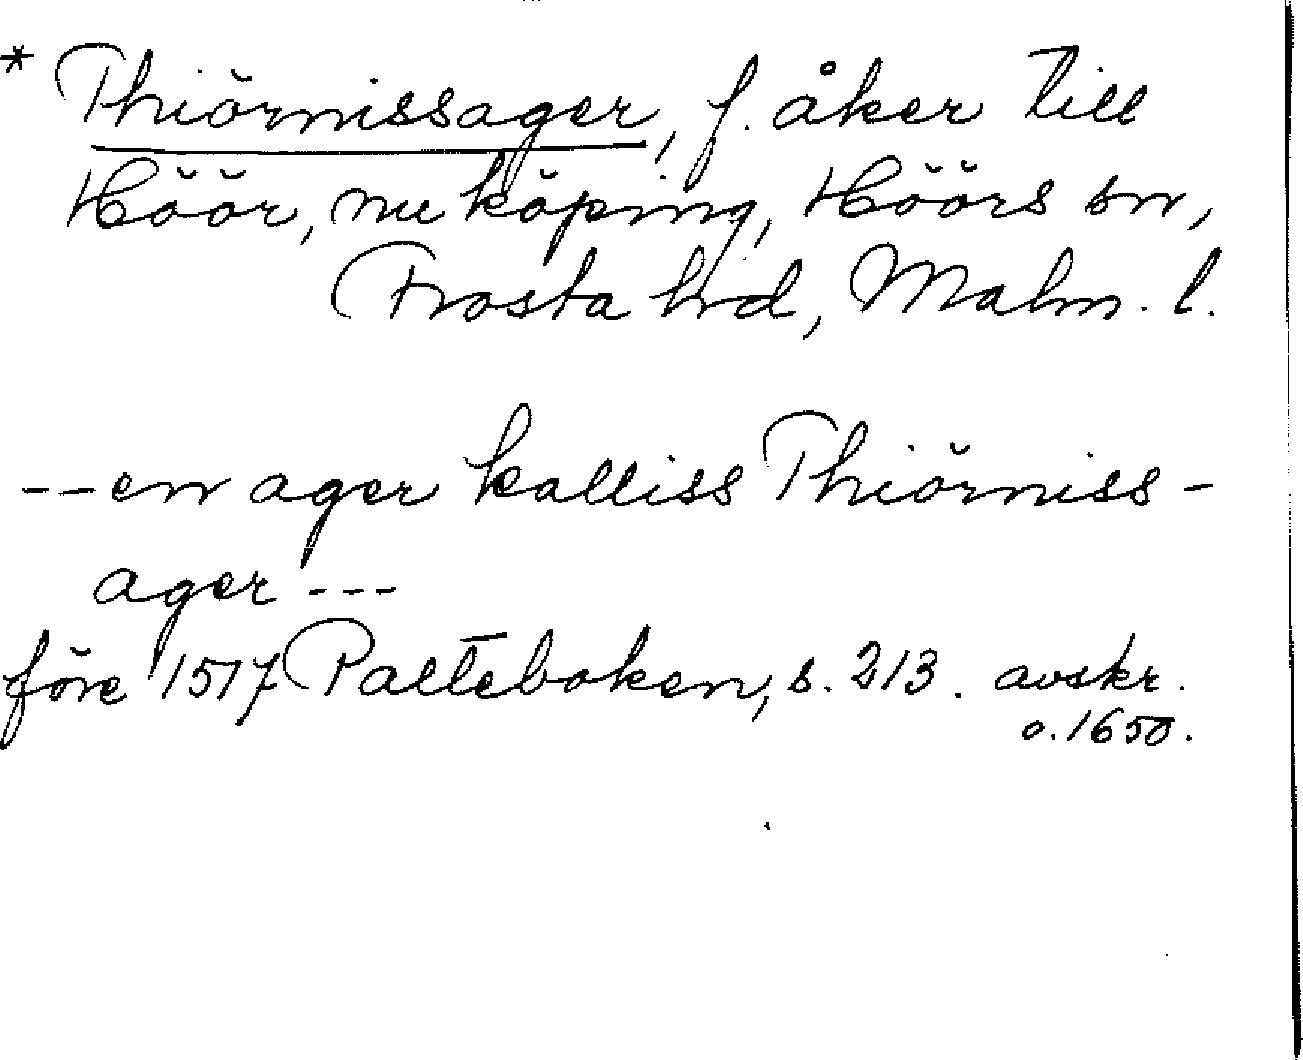 * Thiörnissager, f. åker till
Höör, nu köping, Höörs sn,
Frosta hrd, Malm. l.
--en ager kalliss Thiörniss-
ager ---
före 1517 Palteboken, s. 213. avskr.
o. 1650.